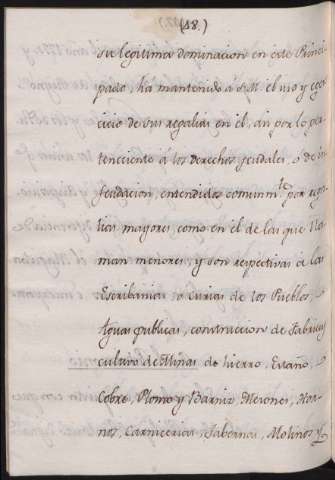 (18.)
su legitima dominacion en este Princi-
pado, ha mantenido á S.M. el uso y eger-
cicio de sus regalias en él, asi por lo per-
teneciente á los derechos feudales, ó de in-
feudacion, entendidos comunm.te por rega-
lias mayores, como en el de las que lla-
man menores, y son respectivas á las
Escribanias ó curias de los Pueblos,
Aguas publicas, construccion de Fabricas
cultivo de Minas de hierro, Estaño,
Cobre, Plomo y Barniz Mesones, Hor-
nos, Carnicerias, Tabernas, Molinos y